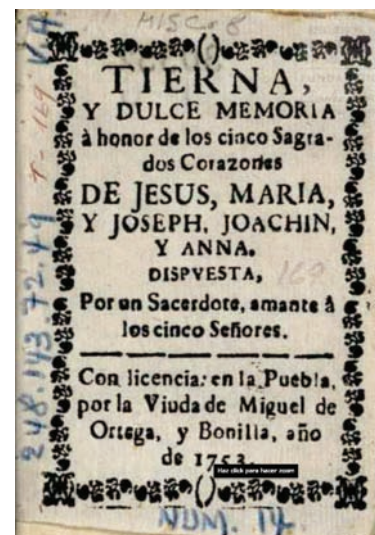 MISC. 8
TIERNA,
Y DULCE MEMORIA
à honor de los cinco Sagra-
dos Corazones
DE JESUS, MARIA,
Y JOSEPH, JOACHIN,
Y ANNA.
DISPVESTA,
169
Por un Sacerdote, amante â
los cinco Señores.
Con licencia: en la Puebla,
por la Viuda de Miguel de
Ortega, y Bonilla, año
de 1753.
Haz click para hacer zoom
NUM. 14
248.143.72.49 T-169 V.A.